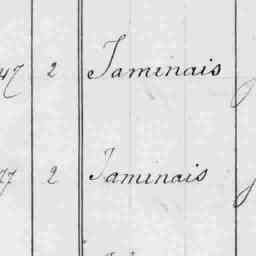 47 2 Jaminais
77 2 Jaminais